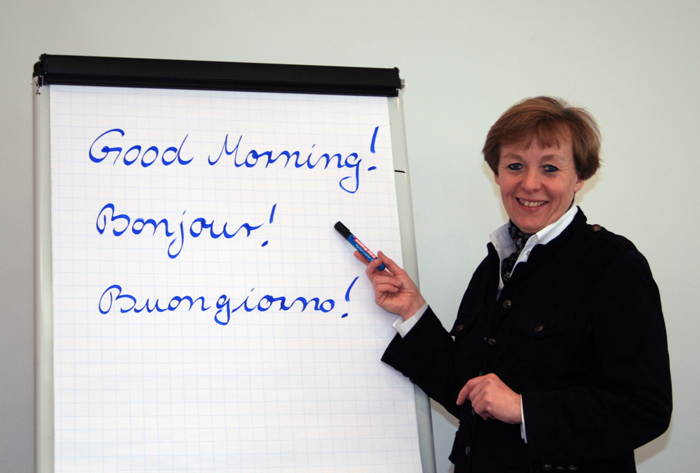 Good Morning!
Bonjour!
Buongiorno!